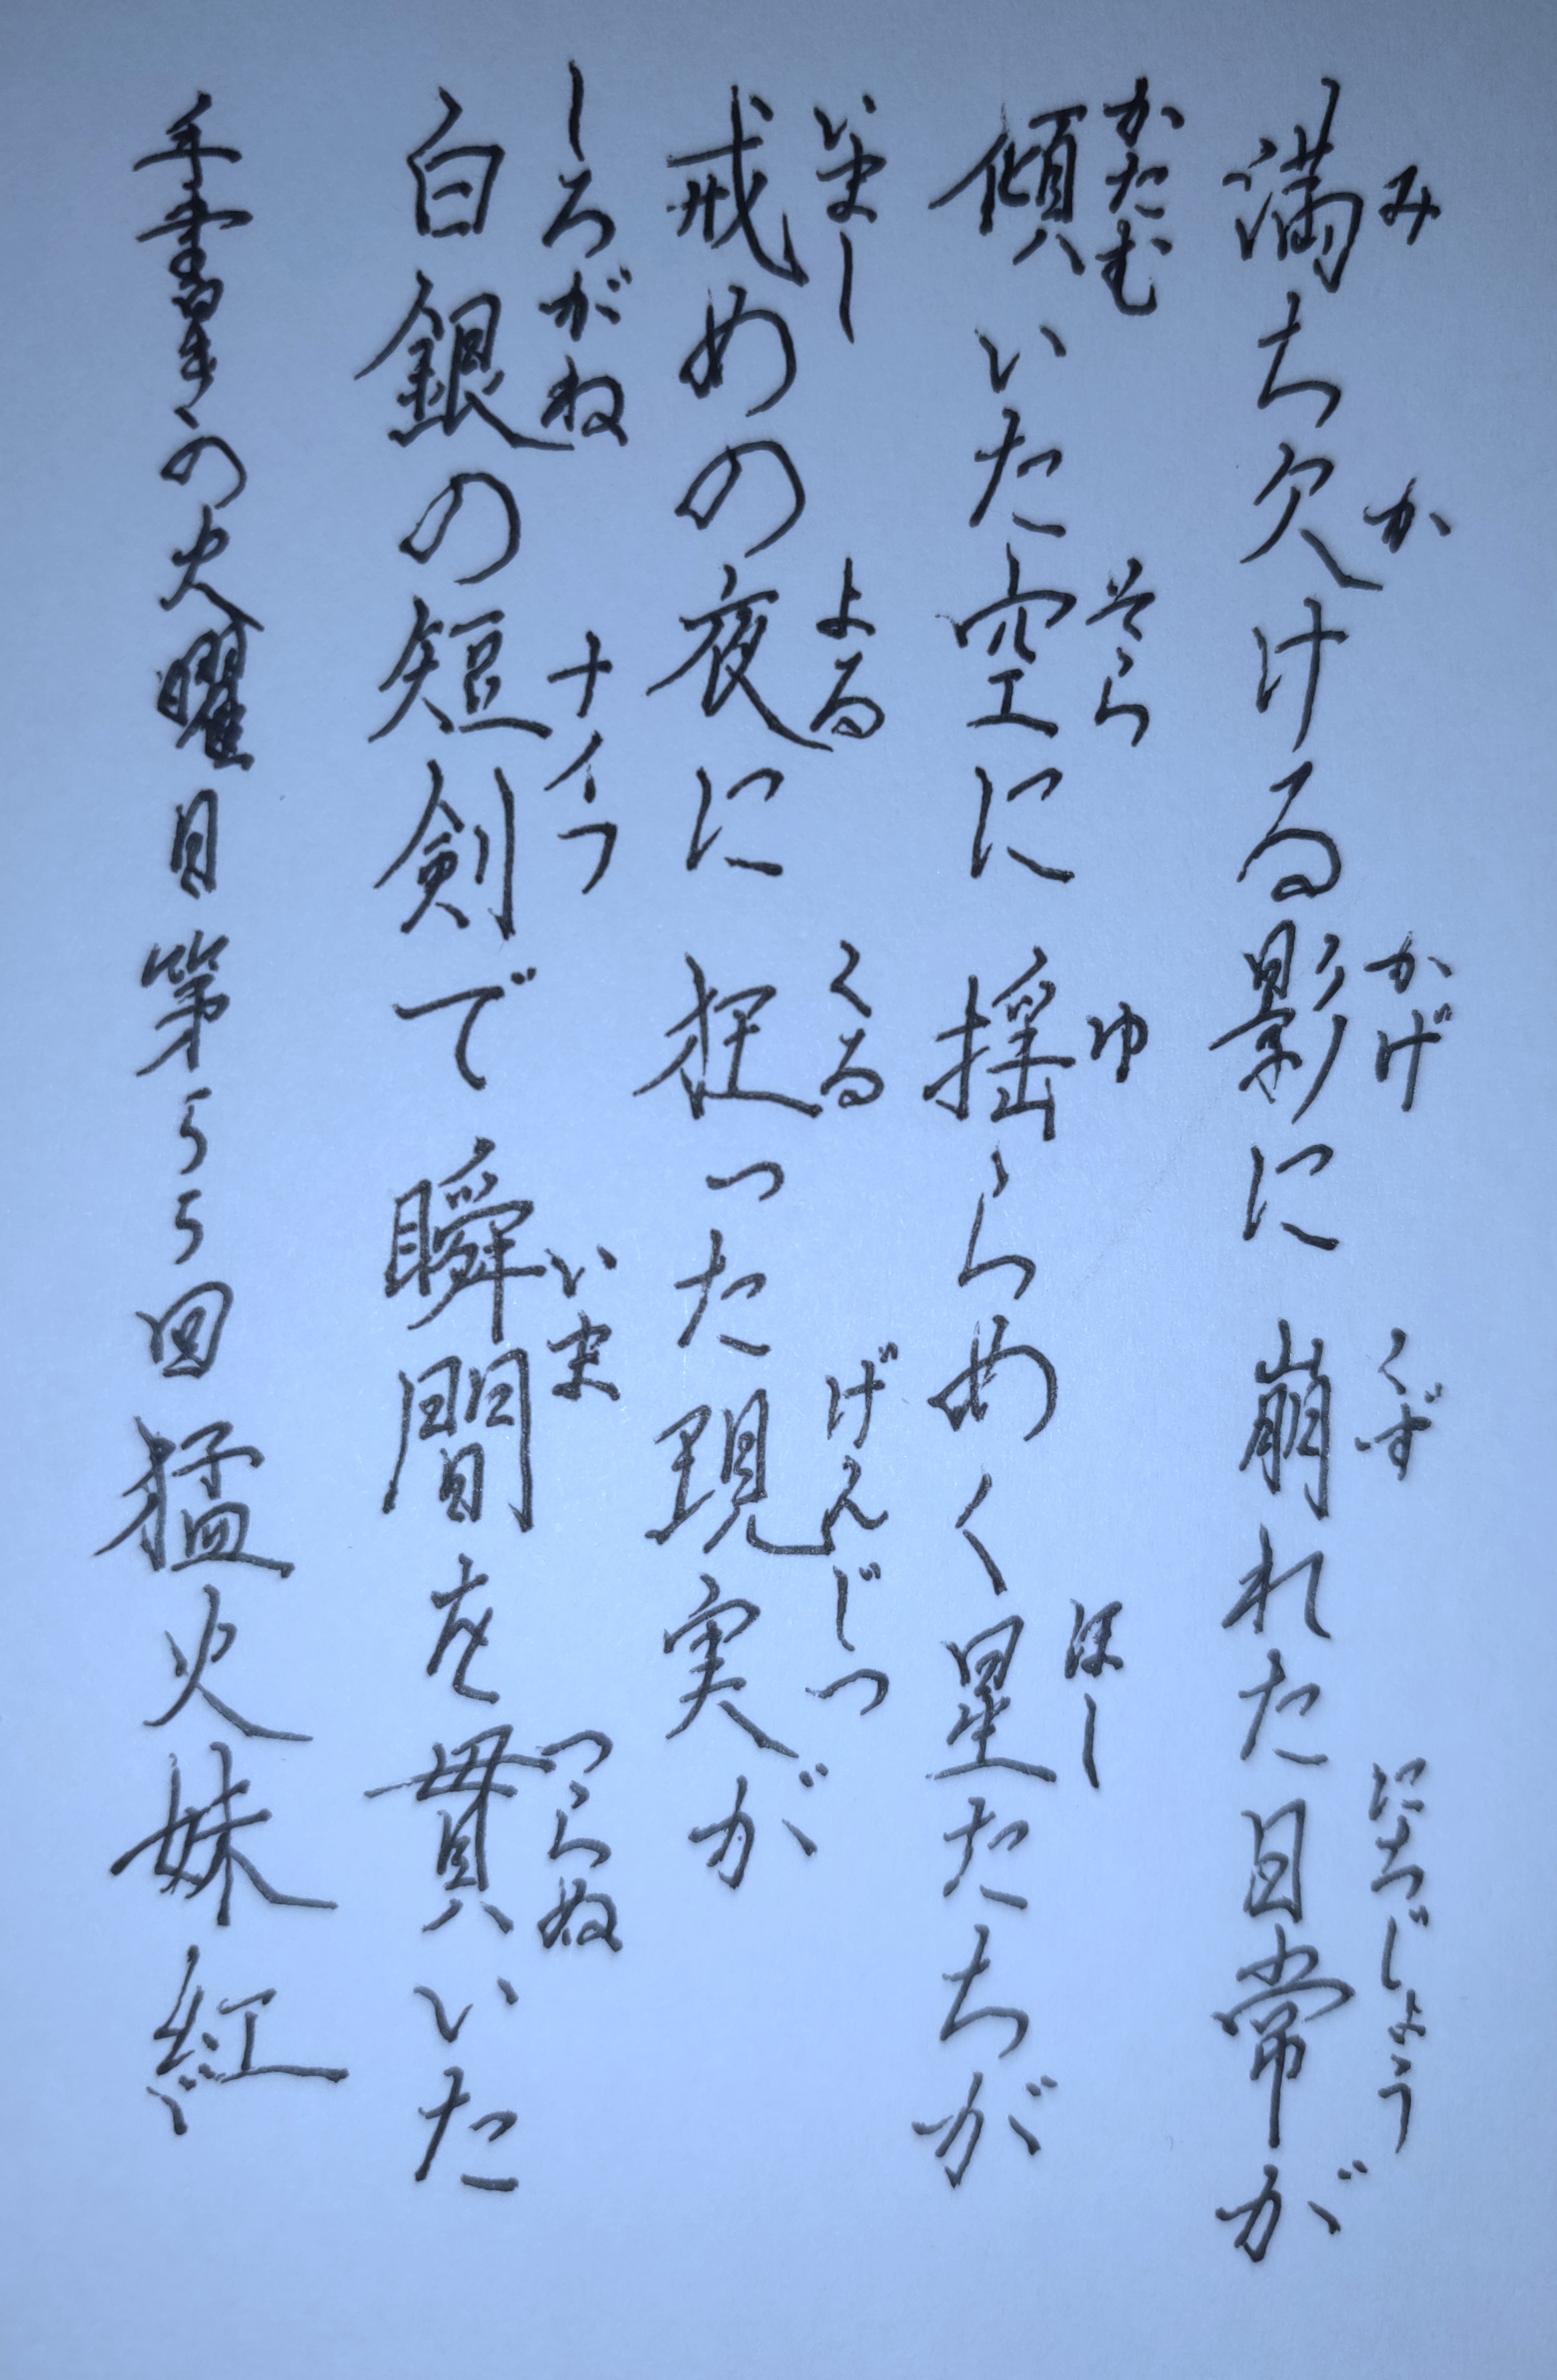 満ち欠ける影に 崩れた日常が
み か かげ くず にちじょう
傾いた空に 揺らめく星たちが
かたむ そら ゆ ほし
戒めの夜に 狂った現実が
いまし よる くる げんじつ
白銀の短剣で 瞬間を貫いた
しろがね ナイフ いま つらぬ
手書きの火曜日第55回 猛火妹紅